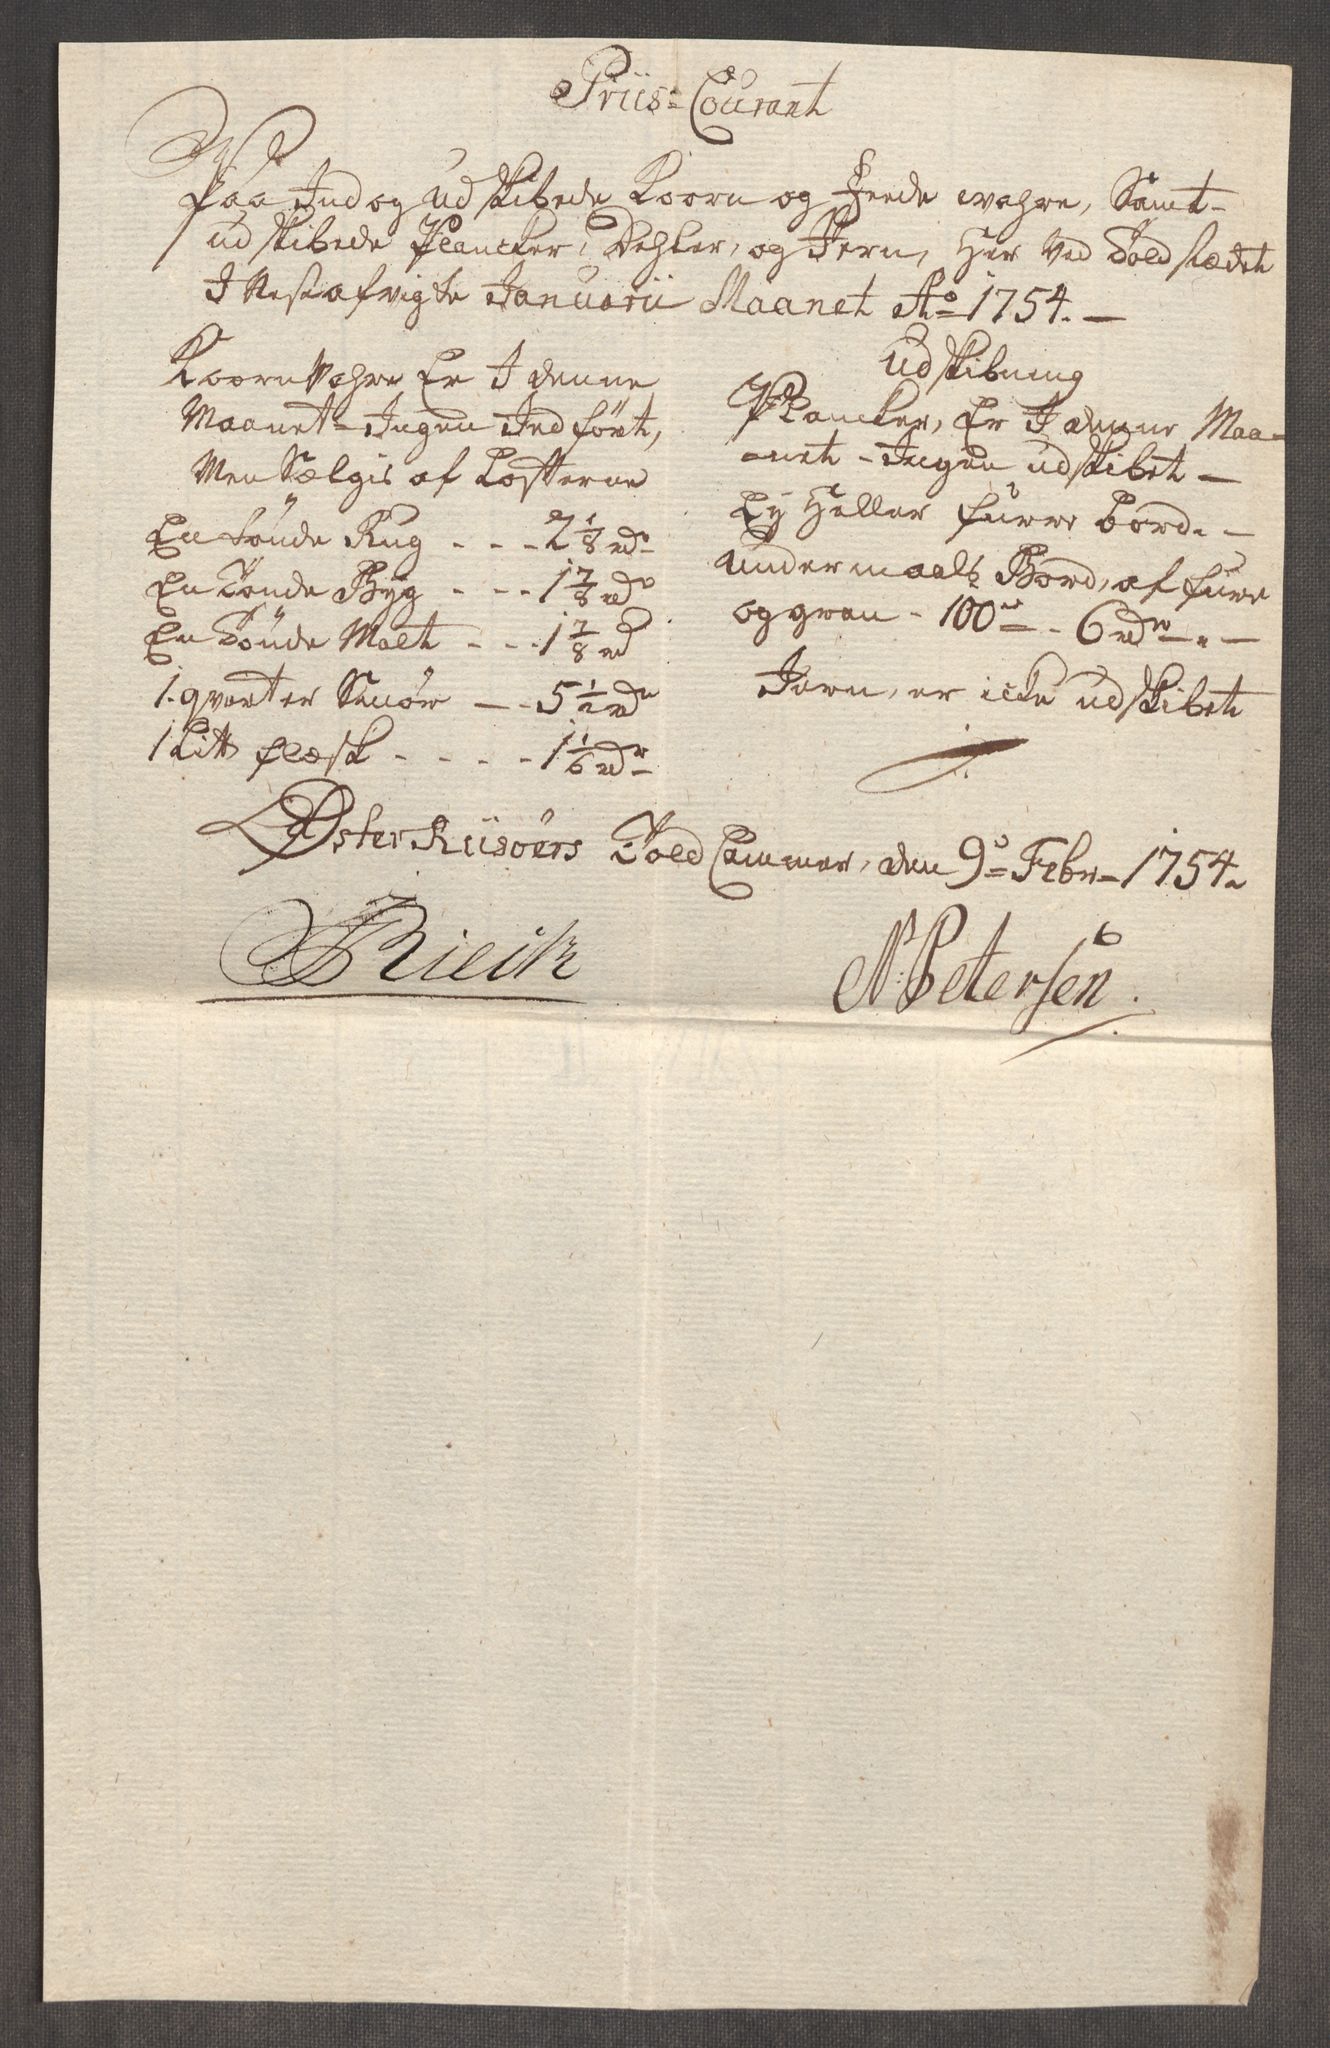 Priis-Courant
Paa Ind og Udskibede Koorn og Feede wahre, Samt-
udskibede Plancker, Dehler, og Jern, Her Ved Toldstædet
I Næst afvigte Januarii Maanet Ao 1754. —
Koorn Vahre Er I denne
Maanet - Ingen Ind fört,
Men Sælgis af Losterne
En Tönde Rug - - - 2 1/8 rdr
En Tönde Byg - - - 1 7/8 rdr
En Tönde Malt - - - 1 7/8 rd
1. qvarter Smör — - 5 1/2 rdr
1 Litt flæsk - - - - 1 1/6 rdr
Udskibning
Plancker, Er I denne Maa-
-net - Ingen udskibet —
Ey Heller furre bord. —
Undermaals Bord, af fure
og gran - 100de - 6 rdr. —
Jern, er icke udskibet
Øster Riisöers Told Cammer, den 9de Febr 1754.
Rieck
N: Petersen.